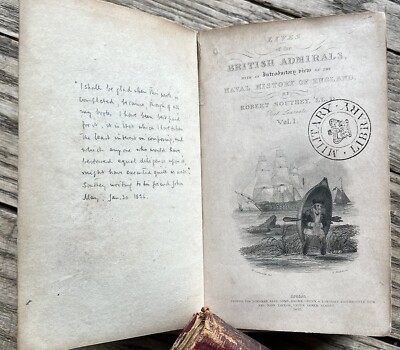 "I shall be glad when this book is
completed, because though of all
my books I have been best paid
for it, it is that which I have taken
the least interest in composing, and
which anyone who would have
bestowed equal diligence upon it,
might have executed quite as well."
Southey writing to his friend John
May, Jan. 20 1835.
LIVES
OF THE
BRITISH ADMIRALS,
WITH AN Introductory View OF THE
NAVAL HISTORY OF ENGLAND.
BY
ROBERT SOUTHEY, LL.D.
Poet Laureate.
Vol. I.
MILITARY LIBRARY
LONDON: